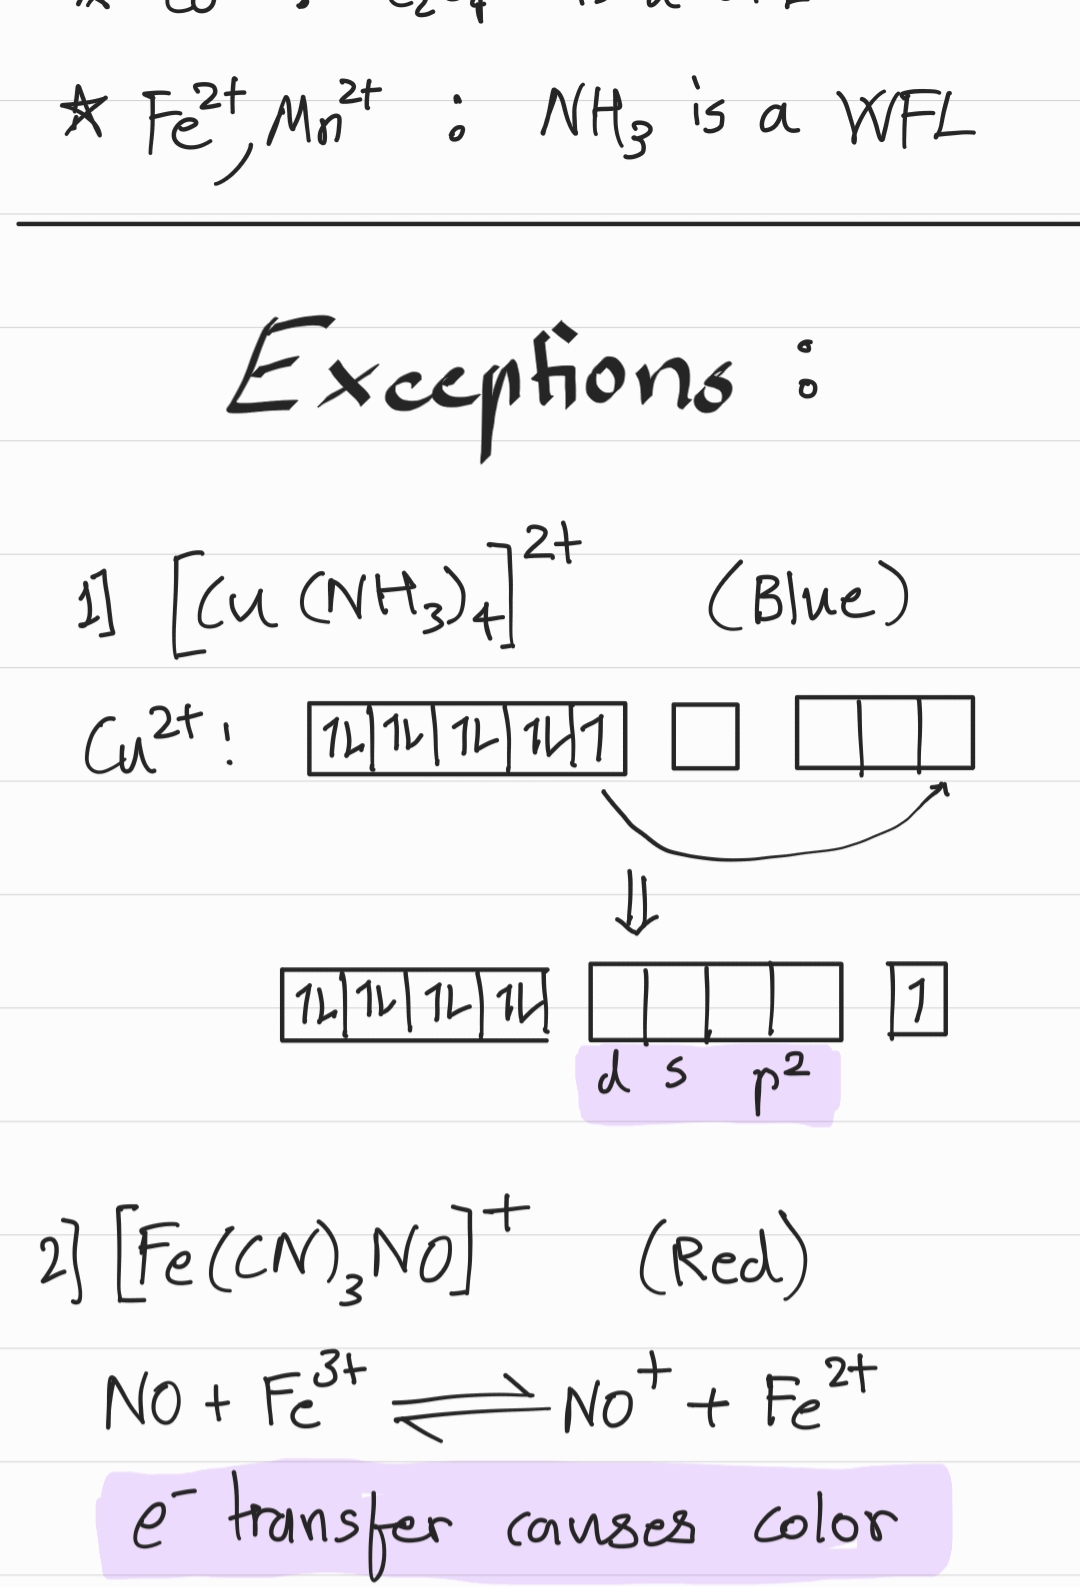 ☆ Fe²⁺, Mn²⁺ : NH₃ is a WFL
Exceptions :
1] [Cu (NH₃)₄]²⁺ (Blue)
Cu²⁺: 1L 1L 1L 1L 1
1L 1L 1L 1L 1
d s p²
2] [Fe(CN)₃NO]⁺ (Red)
NO + Fe³⁺ ⇌ NO⁺ + Fe²⁺
e⁻ transfer causes color